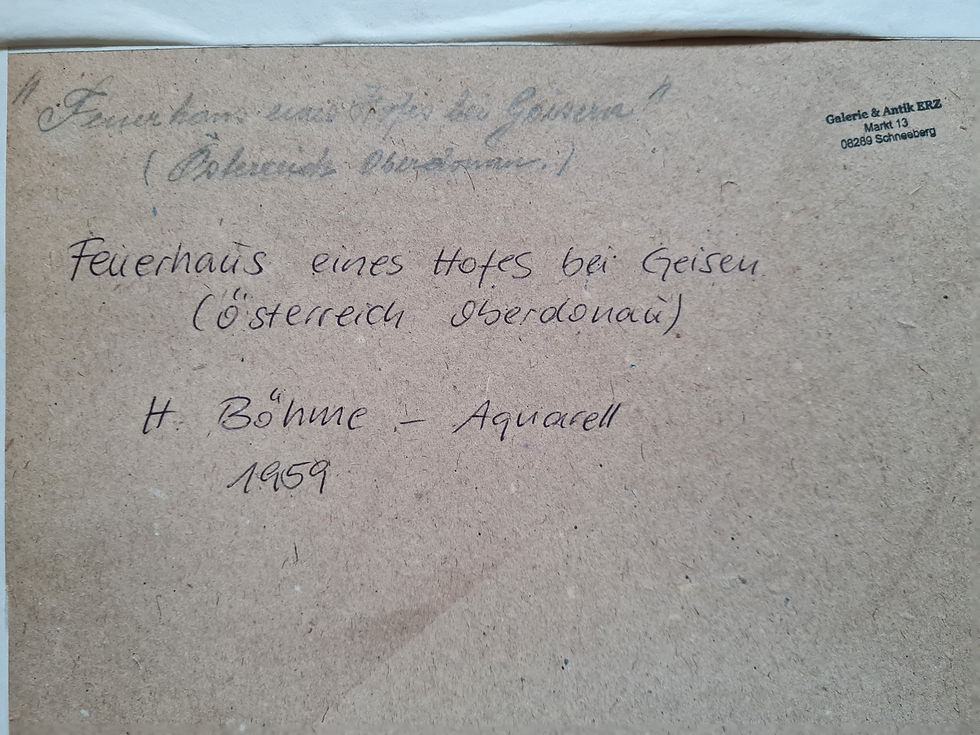 "Feuerhaus eines Hofes bei Goisern"
(Österreich Oberdonau.)
Galerie & Antik ERZ
Markt 13
08289 Schneeberg
Feuerhaus eines Hofes bei Geisen
(Österreich Oberdonau)
H. Böhme – Aquarell
1959